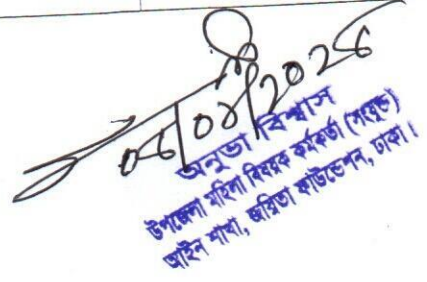 অনুভা বিশ্বাস
উপজেলা মহিলা বিষয়ক কর্মকর্তা (সংযুক্ত)
আইন শাখা, জয়িতা ফাউন্ডেশন, ঢাকা।